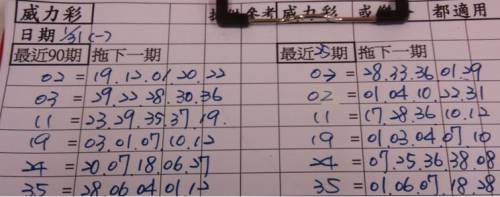 威力彩 參考 威力彩 或 都適用
日期 1/31 (一)
最近90期 拖下一期 最近25期 拖下一期
02 = 19.12.01.20.22 07 = 28.33.36.01.29
03 = 29.22.28.30.36 02 = 01.04.10.22.31
11 = 23.29.35.37.19. 11 = 17.28.36.10.12
19 = 03.01.07.10.12 19 = 01.03.04.07.10
24 = 20.07.18.06.27 24 = 07.25.36.38.08
35 = 28.06.04.01.12 35 = 01.06.07.18.28